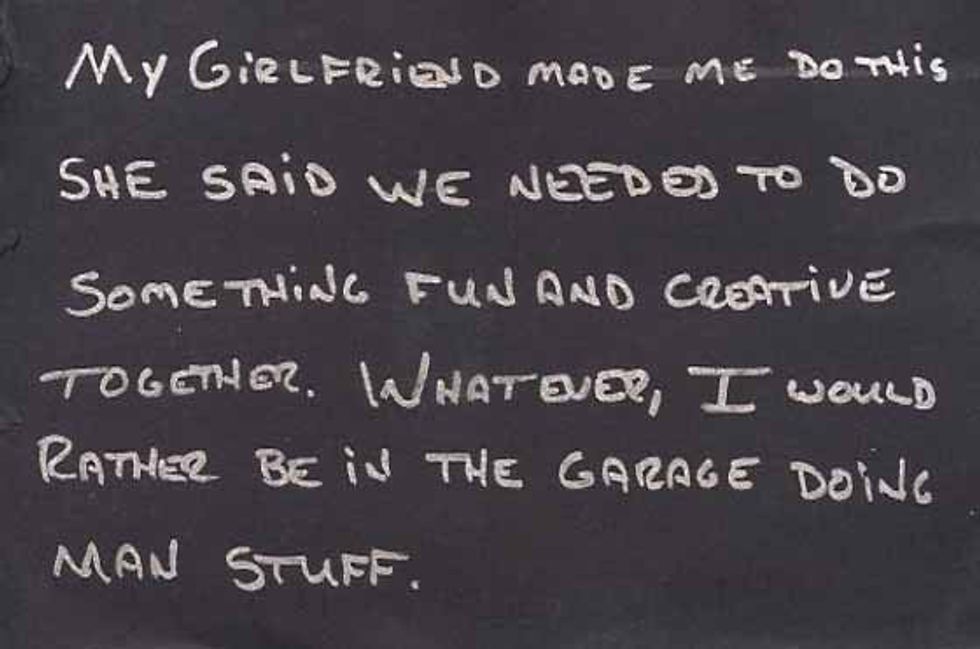 My GiRLFRiEND MADE ME DO THiS
SHE SAiD WE NEEDED TO DO
SOMETHiNG FUN AND CREATiVE
TOGETHER. WHATEVER, I WOULD
RATHER BE iN THE GARAGE DOiNG
MAN STUFF.